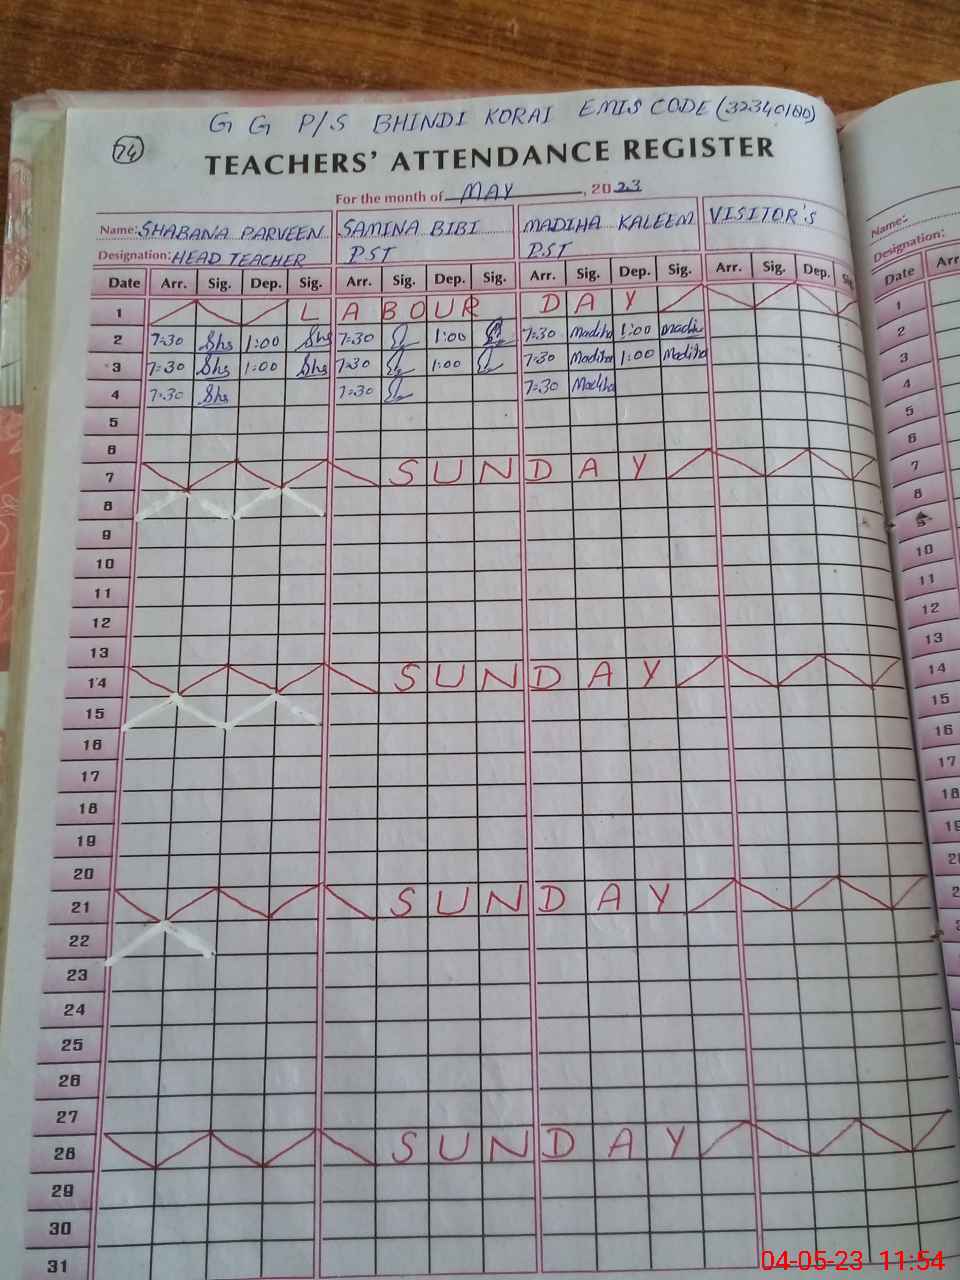 G G P/S BHINDI KORAI EMIS CODE (32340180)
74
TEACHERS' ATTENDANCE REGISTER
For the month of MAY, 2023
Name: SHABANA PARVEEN SAMINA BIBI MADIHA KALEEM VISITOR'S
Designation: HEAD TEACHER PST PST
Date Arr. Sig. Dep. Sig. Arr. Sig. Dep. Sig. Arr. Sig. Dep. Sig. Arr. Sig. Dep.
1 LABOUR DAY
2 7:30 Shs 1:00 Shs 7:30 1:00 7:30 Madiha 1:00 Madi
3 7:30 Shs 1:00 Shs 7:30 1:00 7:30 Madiha 1:00 Madiha
4 7:30 Shs 7:30 7:30 Madiha
5
6
7 SUNDAY
8
9
10
11
12
13
14 SUNDAY
15
16
17
18
19
20
21 SUNDAY
22
23
24
25
26
27
28 SUNDAY
29
30
31
Name:
Designation:
Date Arr
1
2
3
4
5
6
7
8
9
10
11
12
13
14
15
16
17
18
04-05-23 11:54